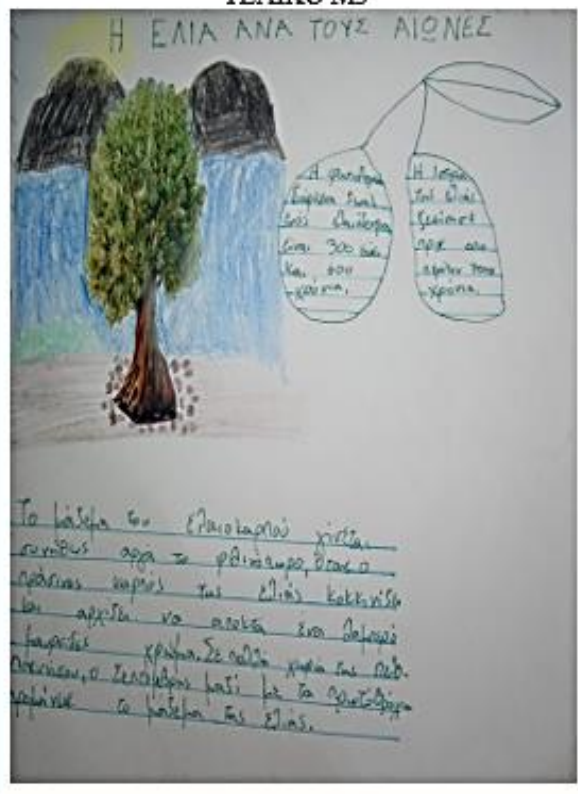 ΤΕΛΙΚΟ Μ5
Η ΕΛΙΑ ΑΝΑ ΤΟΥΣ ΑΙΩΝΕΣ
Η
ζωής
ενός
είναι 300 έως
και 600
χρόνια.
Η Ιστορία
της ελιάς
ξεκίνησε
πριν από
χρόνια.
Το μάζεμα του ελαιοκαρπού γίνεται
συνήθως αργά το φθινόπωρο, όταν ο
πράσινος καρπός της ελιάς κοκκινίζει
και αρχίζει να αποκτά ένα λαμπερό
χρώμα. Σε πολλά χωριά της Πελο-
ποννήσου, ο Σεπτέμβρης μαζί με τα πρωτοβρόχια
το μάζεμα της ελιάς.